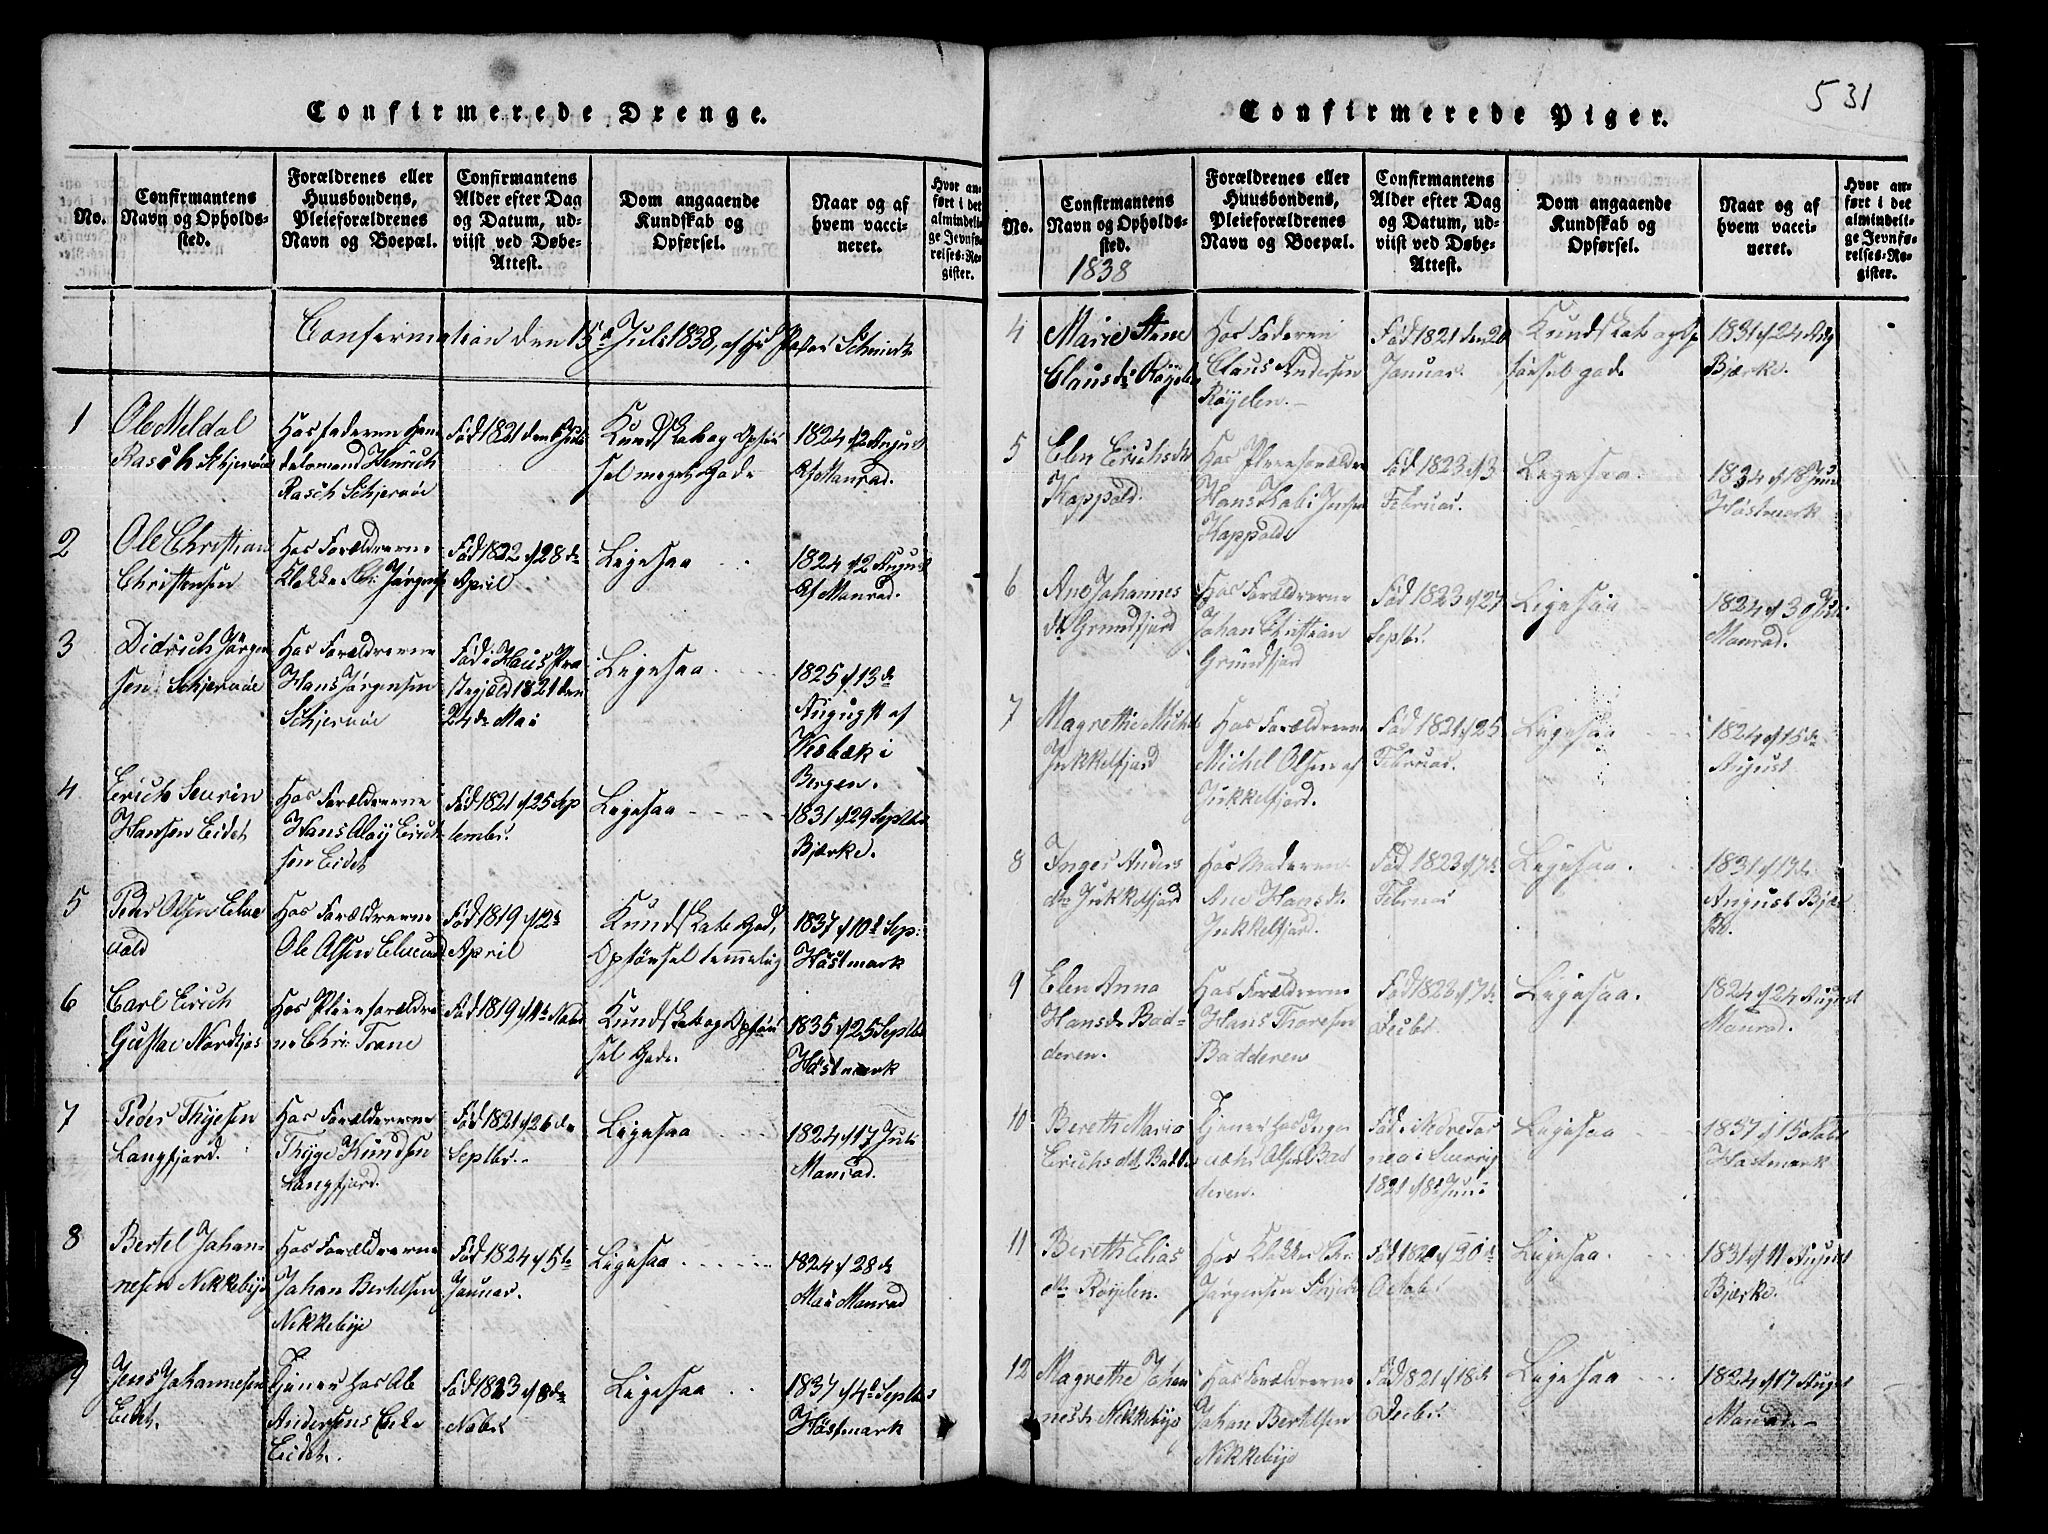 531
Confirmerede Drenge.
No.
Confirmantens
Navn og Opholds-
sted.
Forældrenes eller
Huusbondens,
Pleieforældrenes
Navn og Boepæl.
Confirmantens
Alder efter Dag
og Datum, ud-
viist ved Døbe-
Attest.
Dom angaaende
Kundskab og
Opførsel.
Naar og af
hvem vacci-
neret.
Hvor an-
ført i det
almindeli-
ge Jevnfø-
relses-Re-
gister.
Confirmation den 15de Juli 1838, af Hr Pastor Schmidt
1
Ole Meldal
Rasch Skjervöe
Hos faderen Han-
delsmand Henrich
Rasch Schjervöe
Fød 1821 den
Kundskab og Opför
sel meget Gode
1824 d 2 August
Af Manrad.
2
Ole Christian
Christensen
Hos Forældrerne
Klokke Chr: Jörgens
Fød 1822 d 28de
April
Ligesaa
1824 d 2 August
Af Manrad.
3
Didrich Jörgen
sen Schjervöe
Hos Forældrerne
Hans Jörgensen
Schjervöe
Fød i Haus Præ
stegjeld 1821 den
24de Mai
Ligesaa
1825 d 13de
August af
Wesbæk i
Bergen.
4
Erich Seurin
Hansen Eidet
Hos Forældrerne
Hans Oläy Erich
sen Eidet
Fød 1821 d 25 Sep
tembr.
Ligesaa
1831 d 29 Septbr
Bjerke.
5
Peder Olsen Elve
vold
Hos Forældrerne
Ole Olsen Elvevold
Fød 1819 d 12te
April
Kundskab God,
Opförsel temmelig
1837 d 10de Sep:
Höstmark
6
Carl Erich
Gustav Nordfjos
Hos Pleieforældre
ne Chr: Trane
Fød 1819 d 14de Nobr
Kundskab og Opför
sel Gode.
1835 d 25 Septbr
Höstmark
7
Peder Thygesen
Langfjord.
Hos Forældrerne
Thyge Knudsen
Langfjord.
Fød 1821 d 26de
Septbr.
Ligesaa
1824 d 17 Juli
Manrad.
8
Bertel Johan-
nesen Nikkebye
Hos Forældrerne
Johan Bertelsen
Nikkebye
Fød 1824 d 5te
Januar.
Ligesaa
1824 d 28de
Mai Manrad
9
Jens Johannesen
Eidet.
Tjener hos Ab
Andersens Enke
Eidet.
Fød 1823 d 8de
Nobr
Ligesaa
1837 d 4de Septbr
Höstmark
Confirmerede Piger.
No.
Confirmantens
Navn og Opholds-
sted.
1838
Forældrenes eller
Huusbondens,
Pleieforældrenes
Navn og Boepæl.
Confirmantens
Alder efter Dag
og Datum, ud-
viist ved Døbe-
Attest.
Dom angaaende
Kundskab og
Opførsel.
Naar og af
hvem vacci-
neret.
Hvor an-
ført i det
almindeli-
ge Jevnfø-
relses-Re-
gister.
4
Marie Anne
Clausdr Röyelen
Hos Faderen
Claus Andersen
Röyelen.
Fød 1821 den 20
Januar.
Kundskab og Op
försel gode
1831 d 24 Aug
Bjærke.
5
Elen Erichsdr
Koppald.
Hos Pleieforældre
Hans Kabi Jensen
Koppald.
Fød 1823 d 3
Februar.
Ligesaa.
1834 d 18 Juni
Höstmark
6
Ane Johannes
dr Grundfjord
Hos Forældrerne
Johan Christian
Grundfjord
Fød 1823 d 27
Septbr.
Ligesaa
1824 d 30 Juli
Manrad.
7
Magrethe Michel
Jøkkelfjord
Hos Forældrerne
Michel Olsen af
Jøkkelfjord.
Fød 1821 d 25
Februar.
Ligesaa
1824 d 15de
August
8
Inger Anders
dr Jøkkelfjord
Hos Moderen
Ane Hansdr.
Jøkkelfjord.
Fød 1823 d 7de
Februar
Ligesaa.
1831 d 17de
August Bjær
ke.
9
Elen Anna
Hansdr Bad-
deren.
Hos Forældrerne
Hans Thoresen
Badderen
Fød 1823 d 7de
Decbr.
Ligesaa.
1824 d 24 August
Manrad.
10
Bereth Maria
Erichsdr Badde
Tjener hos Inge
Olsen Bad
deren.
Fød i Nedre Tor
nea i Sverrig
1821 d 8de Juni
Ligesaa
1837 d 15 Octobr
Höstmark
11
Bereth Elias
dr Röyelen.
Hos Klokker Chr
Jörgensen Skjerv
Fød 1820 d 30de
Octobr
Ligesaa.
1831 d 11 August
Bjærke.
12
Magrethe Johan
nesdr Nikkebye
Hos Forældrerne
Johan Bertelsen
Nikkebye
Fød 1821 d 18de
Decbr.
Ligesaa
1824 d 17 August
Manrad.